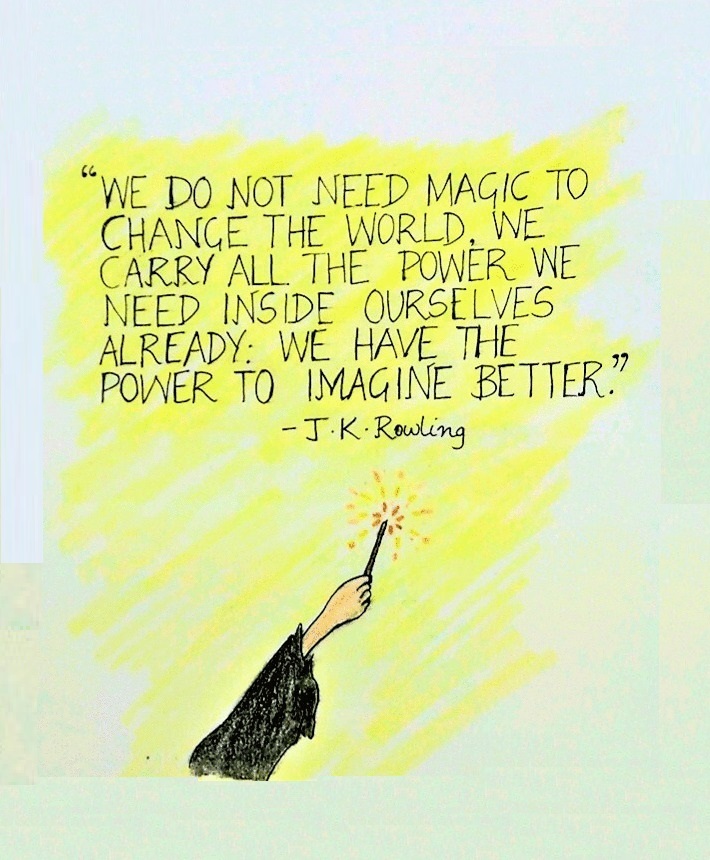 “WE DO NOT NEED MAGIC TO
CHANGE THE WORLD, WE
CARRY ALL THE POWER WE
NEED INSIDE OURSELVES
ALREADY: WE HAVE THE
POWER TO IMAGINE BETTER.”
- J.K.Rowling